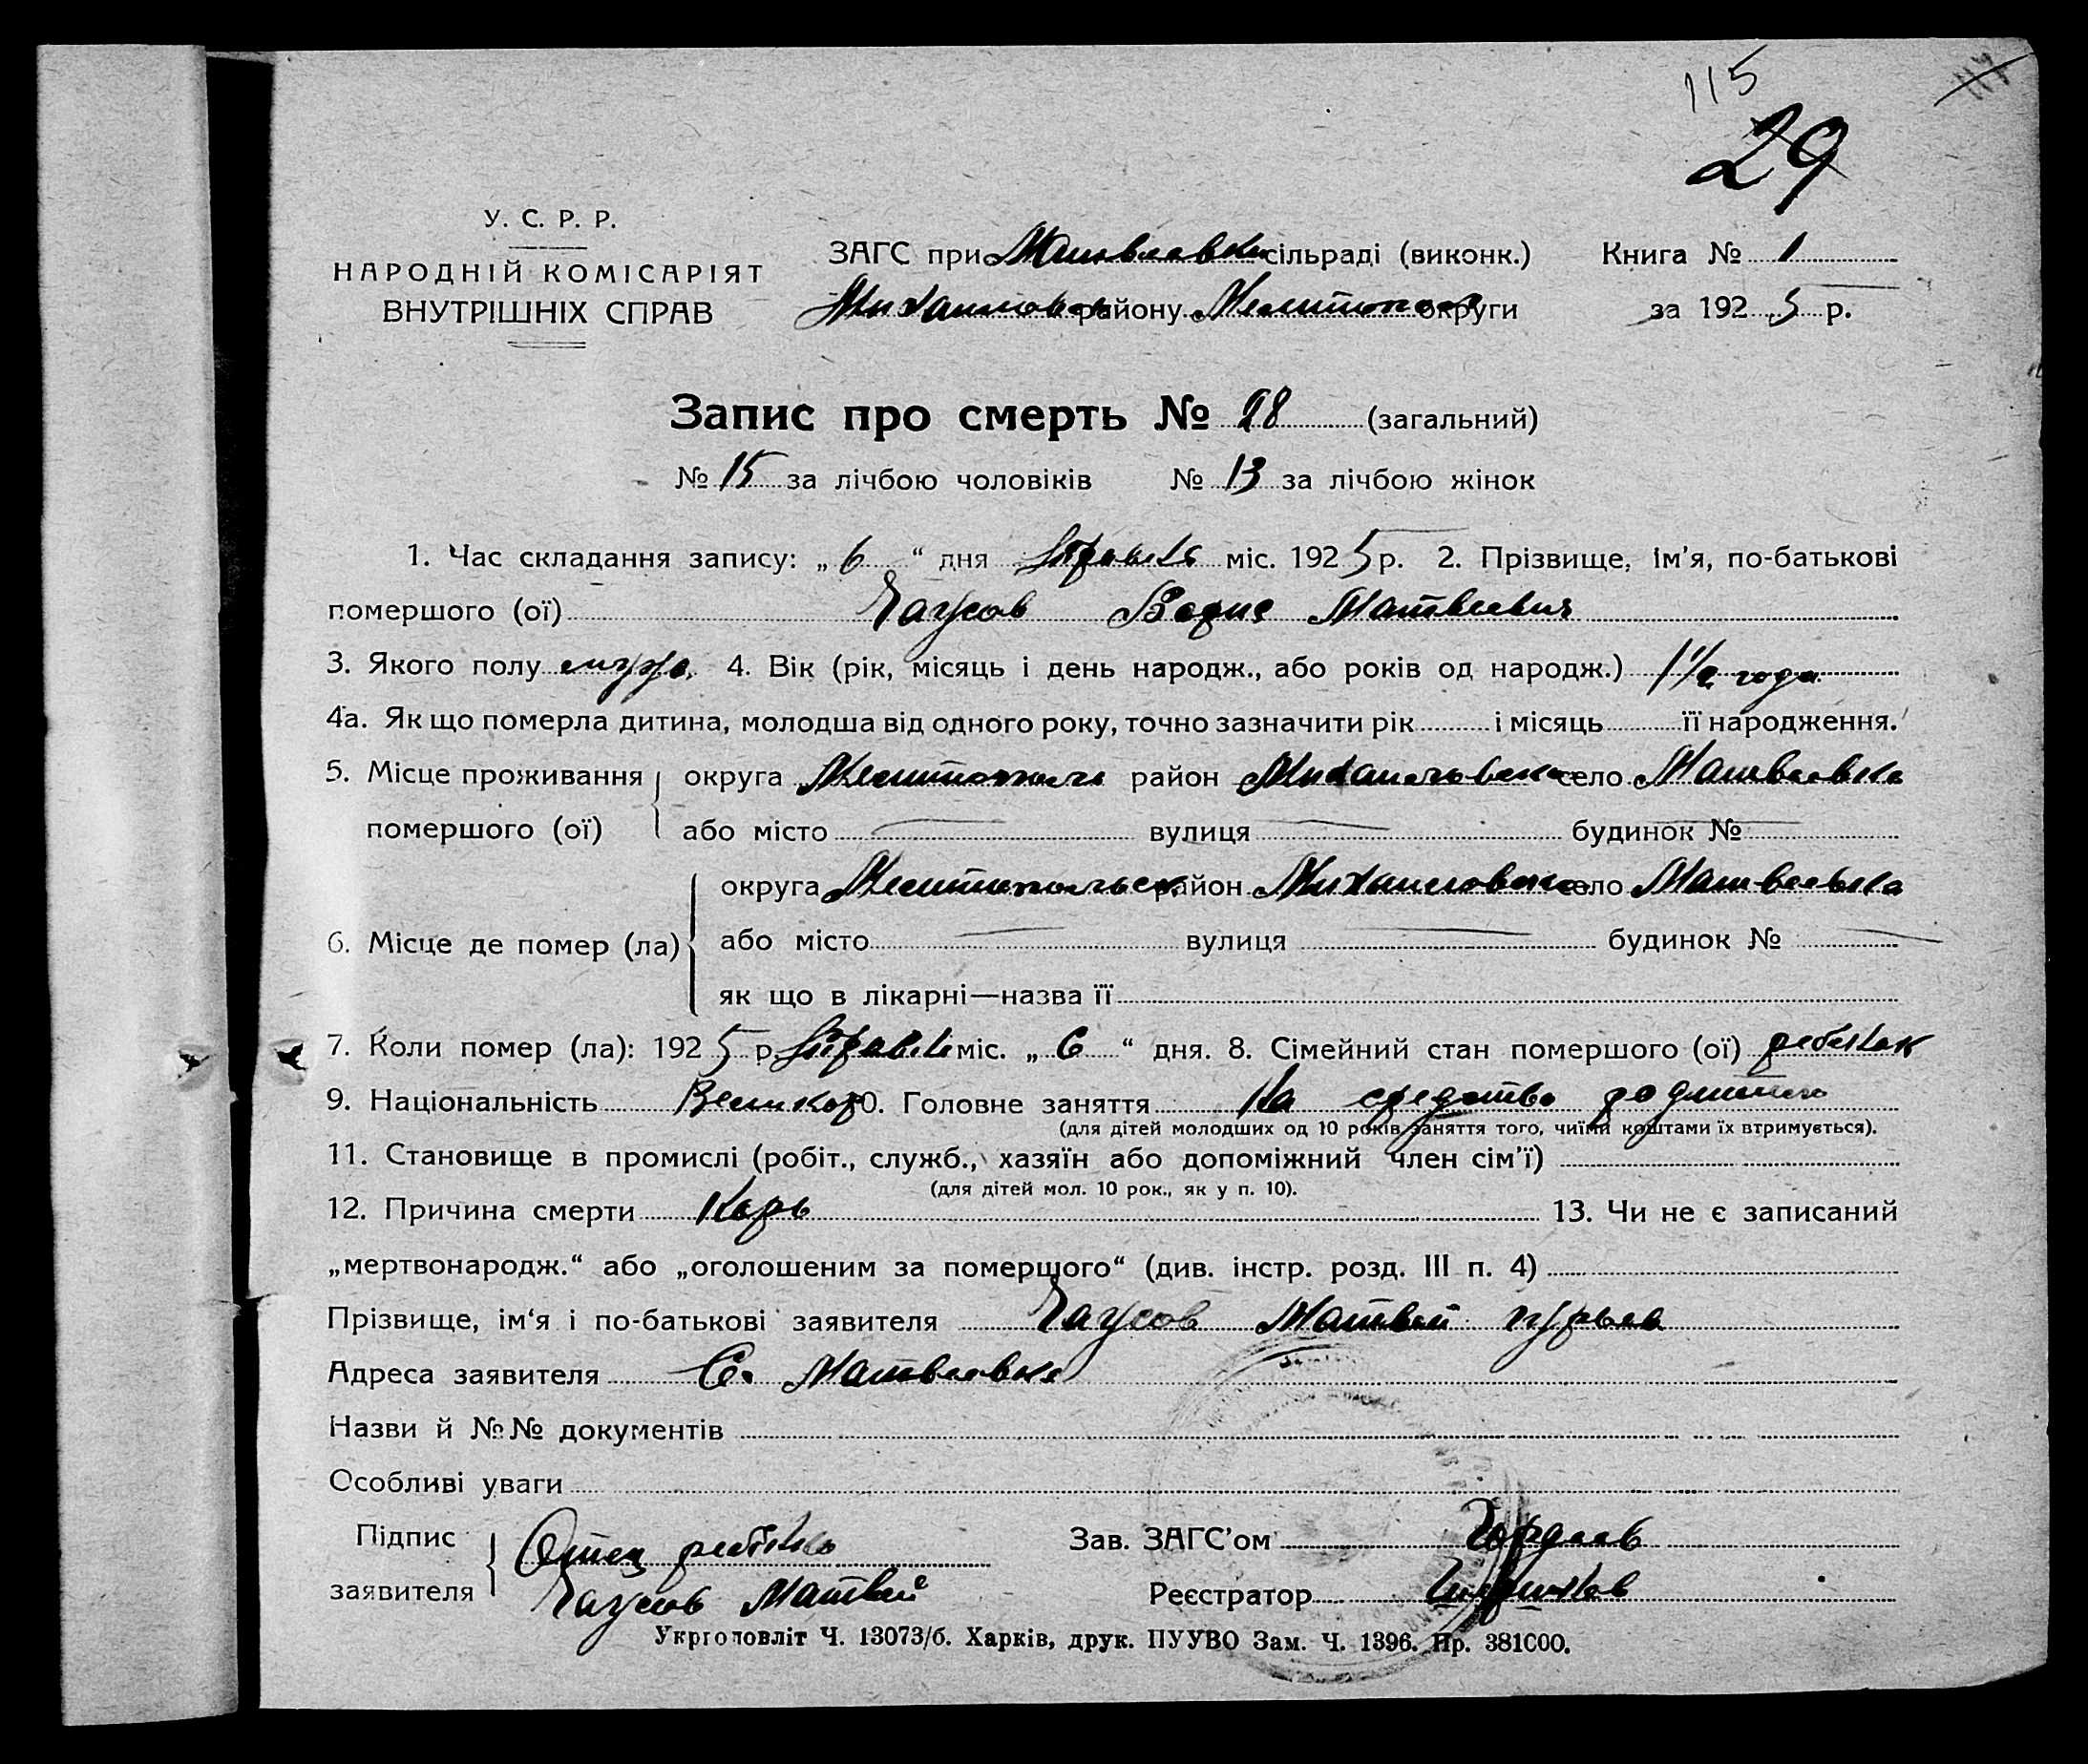 115
29
У. С. Р. Р.
НАРОДНІЙ КОМІСАРІЯТ
ВНУТРІШНІХ СПРАВ
ЗАГС при Матвеевки сільраді (виконк.)
Михайловск району Мелитопол округи
Книга № 1
за 1925 р.
Запис про смерть № 28 (загальний)
№ 15 за лічбою чоловіків № 13 за лічбою жінок
1. Час складання запису: „ 6 “ дня міс. 1925 р. 2. Прізвище, ім'я, по-батькові
помершого (ої) Чаусов Борис Матвеевич
3. Якого полу муж. 4. Вік (рік, місяць і день народж., або років од народж.) 1 1/2 года
4а. Як що померла дитина, молодша від одного року, точно зазначити рік і місяць її народження.
5. Місце проживання помершого (ої) округа Мелитополь район Михайловск село Матвеевка
або місто вулиця будинок №
6. Місце де помер (ла) округа Мелитопольск район Михайловск село Матвеевка
або місто вулиця будинок №
як що в лікарні—назва її
7. Коли помер (ла): 1925 р. міс. „ 6 “ дня. 8. Сімейний стан помершого (ої) ребенок
9. Національність Великор 10. Головне заняття На средства родителей
(для дітей молодших од 10 років заняття того, чиїми коштами їх втримується).
11. Становище в промислі (робіт., служб., хазяїн або допоміжний член сім'ї)
(для дітей мол. 10 рок., як у п. 10).
12. Причина смерти Корь 13. Чи не є записаний
„мертвонародж.“ або „оголошеним за помершого“ (див. інстр. розд. III п. 4)
Прізвище, ім'я і по-батькові заявителя Чаусов Матвей Гурьев
Адреса заявителя С. Матвеевка
Назви й №№ документів
Особливі уваги
Підпис заявителя Отец ребенка
Чаусов Матвей
Зав. ЗАГС'ом Гордеев
Реєстратор
Укрголовліт Ч. 13073/б. Харків, друк. ПУУВО Зам. Ч. 1396. Пр. 381000.